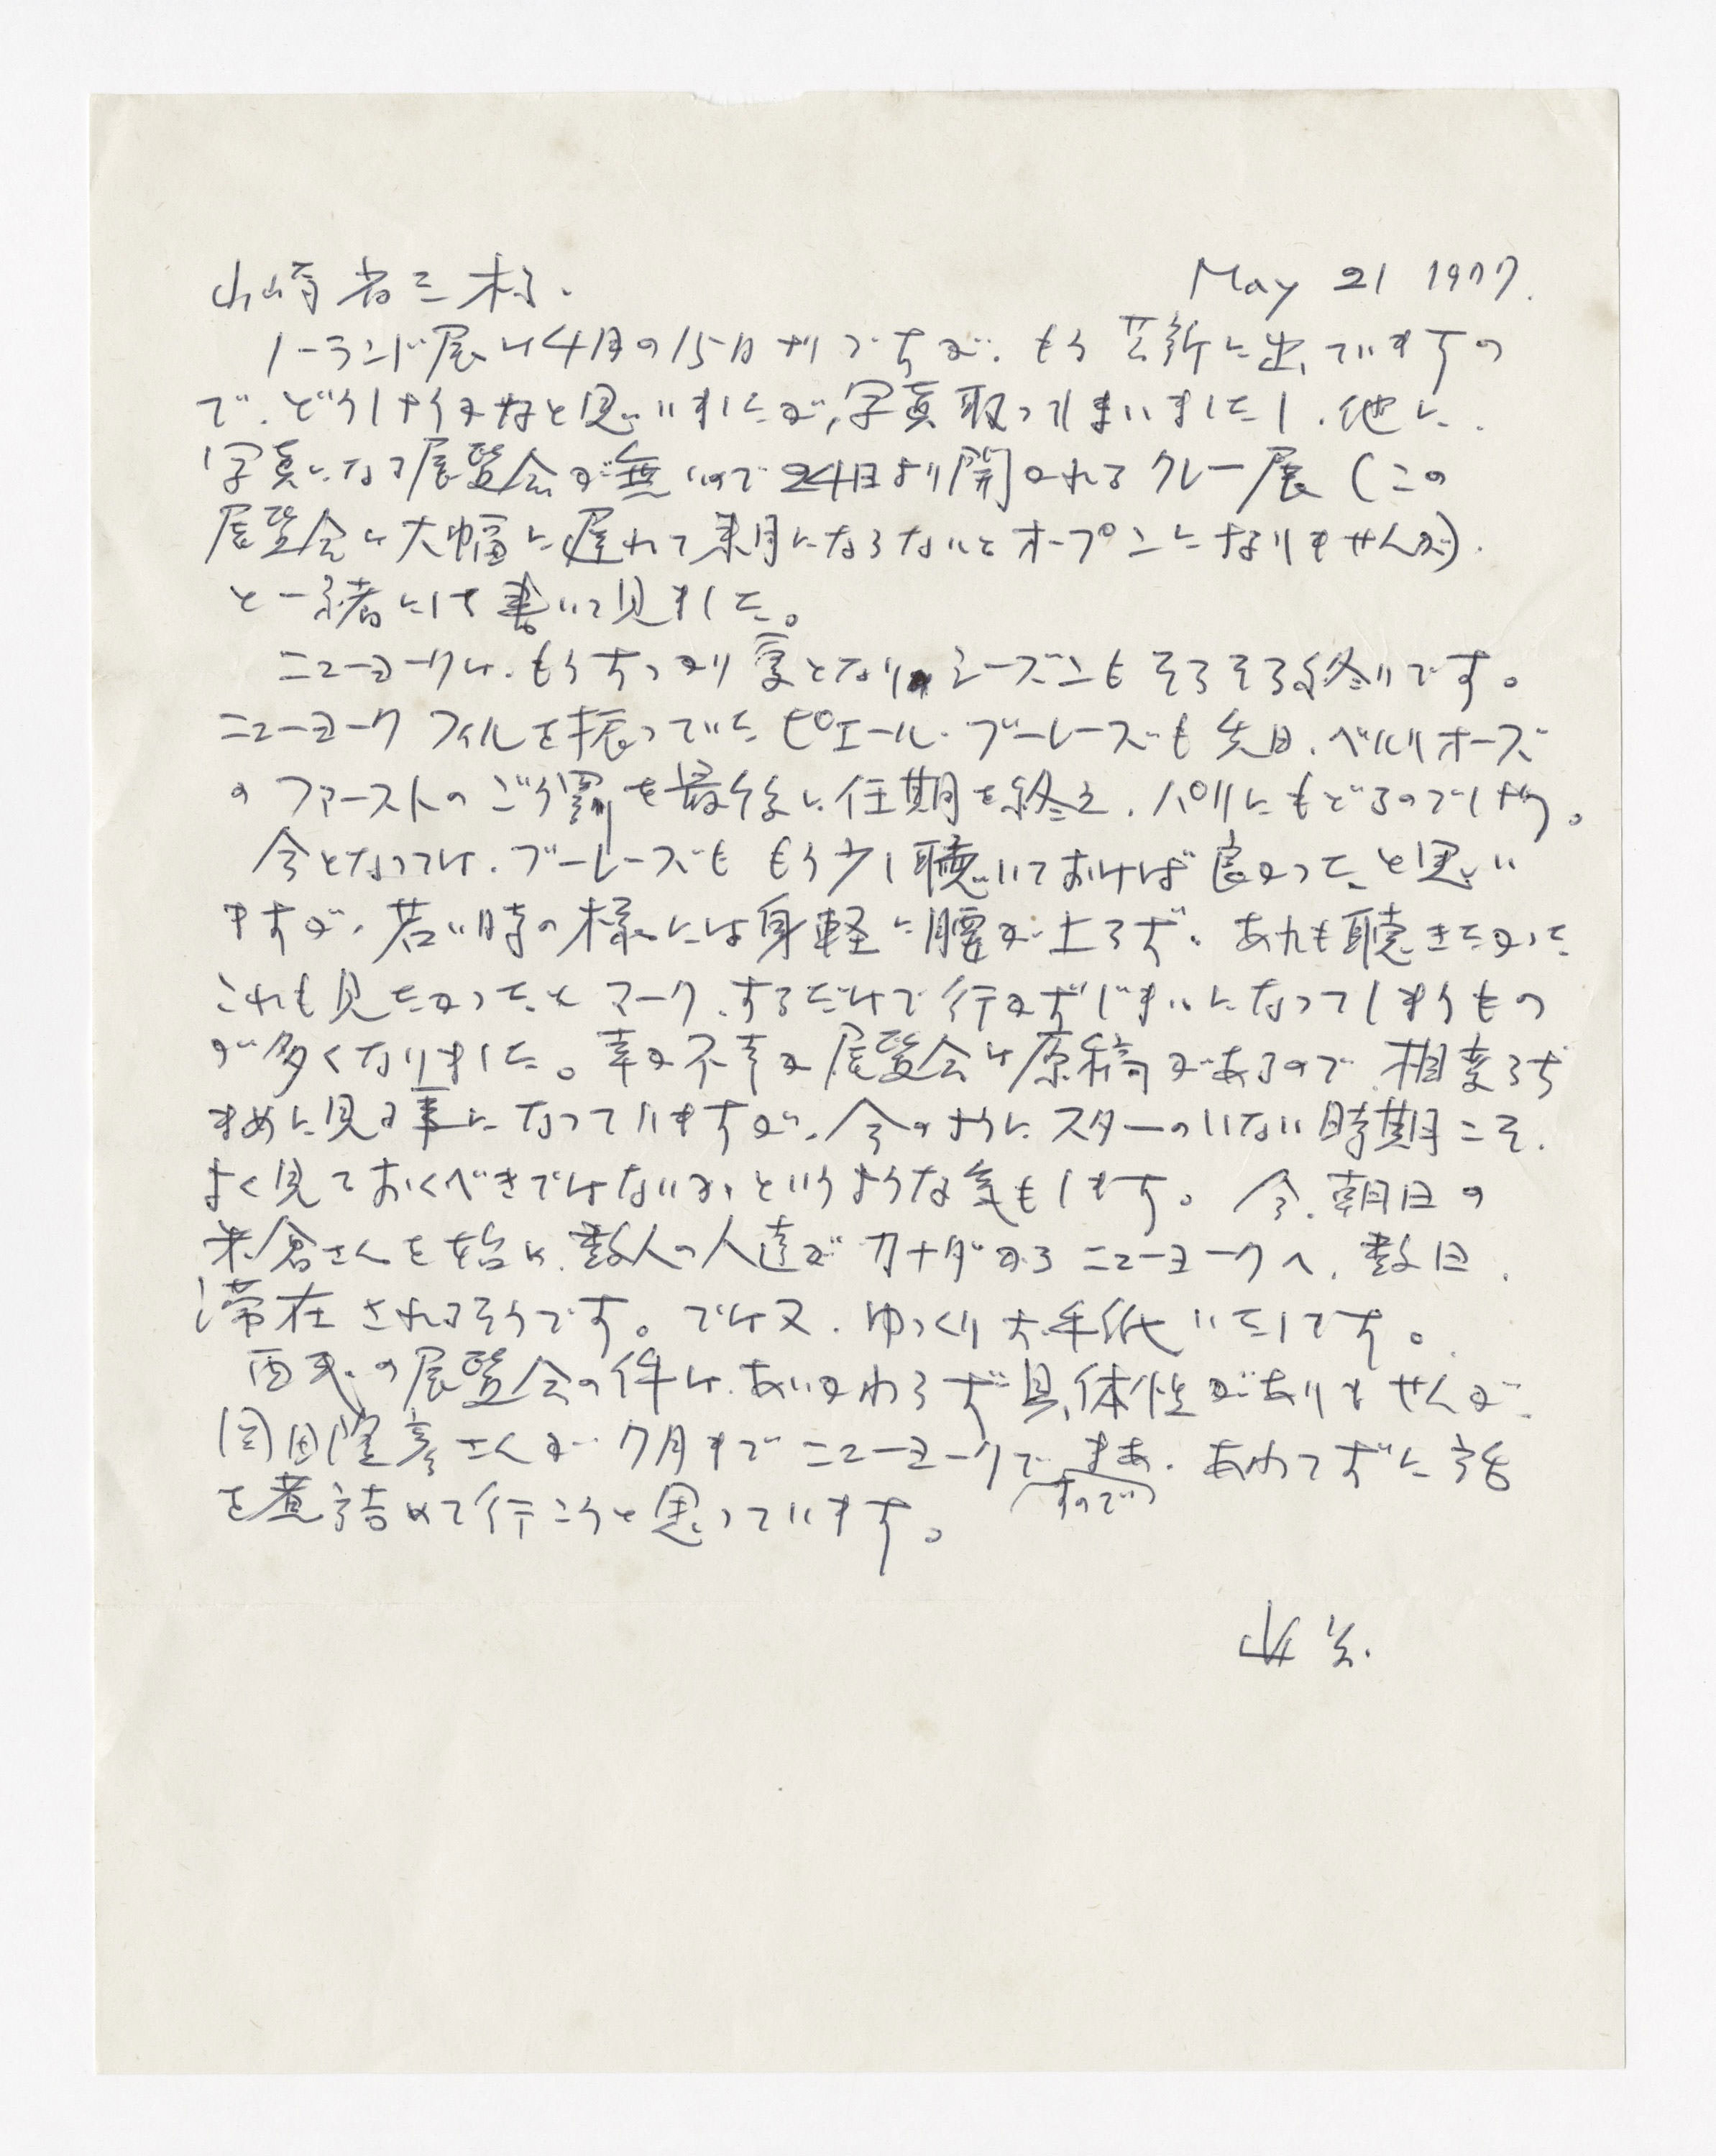 山崎省三様. May 21 1977.
ノーランド展は4月の15日付ですが、もう芸新に出ていますの
で、どうしようかなと思いましたが、写真取ってしまいましたし、他に、
写真になる展覧会が無いので24日より開かれるクレー展(この
展覧会は大幅に遅れて来月にならないとオープンになりませんが)、
と一緒にして書いて見ました。
ニューヨークは、もうすっかり夏となり シーズンもそろそろ終りです。
ニューヨークフィルを振っていたピエール・ブーレーズも先日、ベルリオーズ
のファーストのごう罰を最後に任期を終え、パリにもどるのでしょう。
今となっては、ブーレーズももう少し聴いておけば良かったと思い
ますが、若い時の様には身軽に腰が上らず、あれも聴きたかった
これも見たかったとマークするだけで行かずじまいになってしまうもの
が多くなりました。幸か不幸か展覧会は原稿があるので、相変らず
まめに見る事になっていますが、今のようにスターのいない時期こそ、
よく見ておくべきではないか、というような気もします。 今、朝日の
米倉さんを始め、数人の人達がカナダからニューヨークへ、数日、
滞在されるそうです。では又、ゆっくりお手紙いたします。
西武の展覧会の件は、あいかわらず具体性がありませんが、
岡田隆彦さんが7月までニューヨークで すので、まあ、あわてずに話
を煮詰めて行こうと思っています。